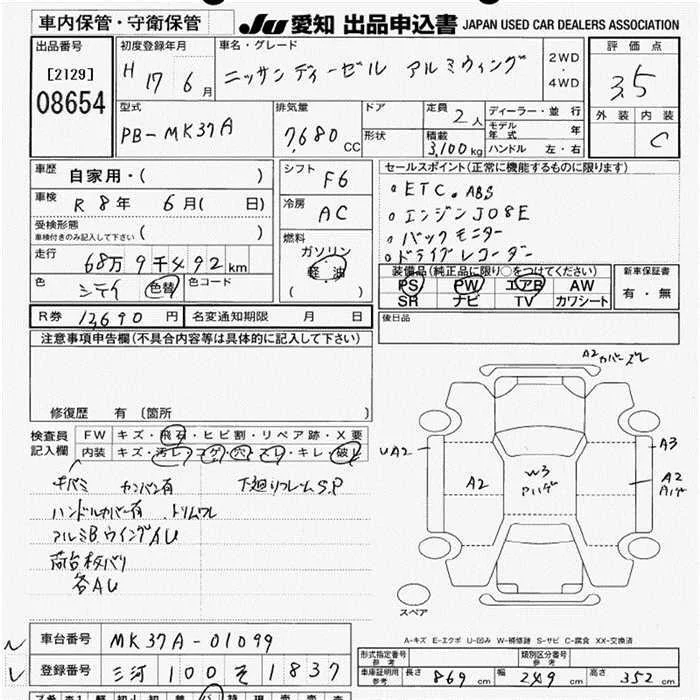 車内保管・守衛保管
JU 愛知 出品申込書 JAPAN USED CAR DEALERS ASSOCIATION
出品番号
[2129]
08654
初度登録年月
H 17 6月
車名・グレード
ニッサンディーゼル アルミウィング
2WD
・
4WD
評価点
3.5
外装 内装
C
型式
PB-MK37A
排気量
7,680 CC
ドア
形状
定員 2人
積載 3,100kg
ディーラー・並行
モデル年式 年
ハンドル 左・右
車歴
自家用・( )
車検 R8年 6月( 日)
受検形態
車検付きのみ記入して下さい ( )
走行
68万9千492km
色
色替
色コード
シフト
F6
冷房
AC
燃料
ガソリン
軽油
( )
セールスポイント(正常に機能するものに限ります)
ETC. ABS
エンジンJ08E
バックモニター
ドライブレコーダー
装備品(純正品に限り○をつけてください)
PS PW エアB AW
SR ナビ TV カワシート
新車保証書
有・無
R券 13,690円
名変通知期限 月 日
後日品
注意事項申告欄(不具合内容等は具体的に記入して下さい)
修復歴 有〔箇所 〕
検査員記入欄
FW キズ・飛石・ヒビ割・リペア跡・X要
内装 キズ・汚レ・コゲ・穴・スレ・キレ・破レ
カンバン有 下廻リフレームS.P
ハンドルカバー有
アルミB.ウイングAU
荷台板バリ
各AU
A2 カバーズレ
UA2
A2
W3
アハゲ
A3
A2
スペア
A-キズ E-エクボ U-凹み W-補修跡 S-サビ C-腐食 XX-交換済
車台番号 MK37A-01099
登録番号 三河 100 そ 1837
形式指定番号
参考
類別区分番号
参考
車庫証明用
参考
長さ 869cm 幅 249cm 高さ 352cm